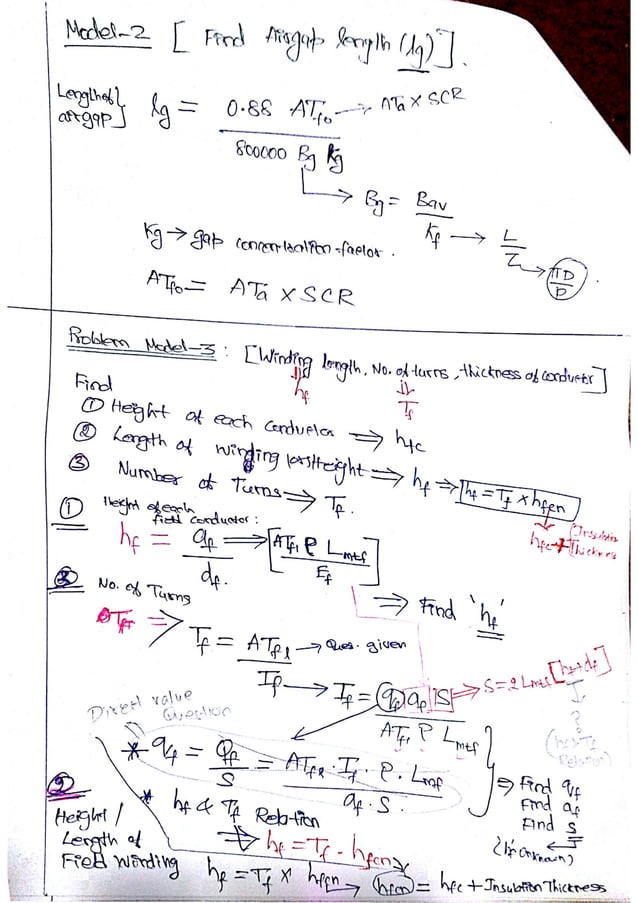 Model-2 [Find Airgap length (lg)].
Length of airgap} lg = 0.88 ATfo → ATa X SCR
800000 Bg Kg
→ Bg = Bav
Kf → L
Z → πD
P
Kg → gap
ATfo = ATa X SCR
Problem Model-3 : [Winding length, No. of turns, thickness of conductor]
hf Tf
Find
① Height of each conductor ⇒ hfc
② Length of winding (or) Height ⇒ hf ⇒ hf = Tf × hfcn
③ Number of Turns ⇒ Tf.
hfc + Insulation Thickness
① Height of each
field conductor:
hf = af ⇒ [ATfl ρ Lmtf]
df. Ef
⇒ Find 'hf'
③ No. of Turns
Tf ⇒
Tf = ATfl → Ques. given
If → If = qf af S ⇒ S = 2 Lmtf [hf + df]
ATfl ρ Lmtf
?
(hf & Tf
Relation)
Direct value
Question
* qf = Qf = ATfl . If . ρ . Lmf
S af . S.
⇒ Find qf
Find af
Find S
(hf unknown)
* hf & Tf Relation
⇒ hf = Tf . hfcn
② Height /
Length of
Field Winding hf = Tf × hfcn → (hfcn) = hfc + Insulation Thickness